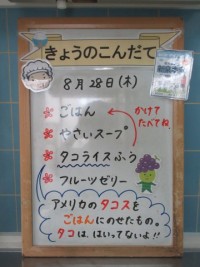 きょうのこんだて
8月28日(木)
ごはん
かけて
たべてね
やさいスープ
タコライスふう
フルーツゼリー
アメリカのタコスを
ごはんにのせたもの。
タコは、はいってないよ!!